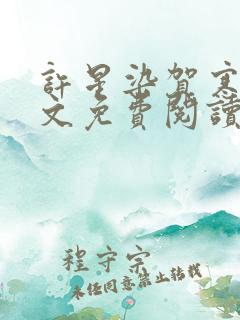 許星染賀寒
文免費閱讀
程守宗
未经同意禁止转载